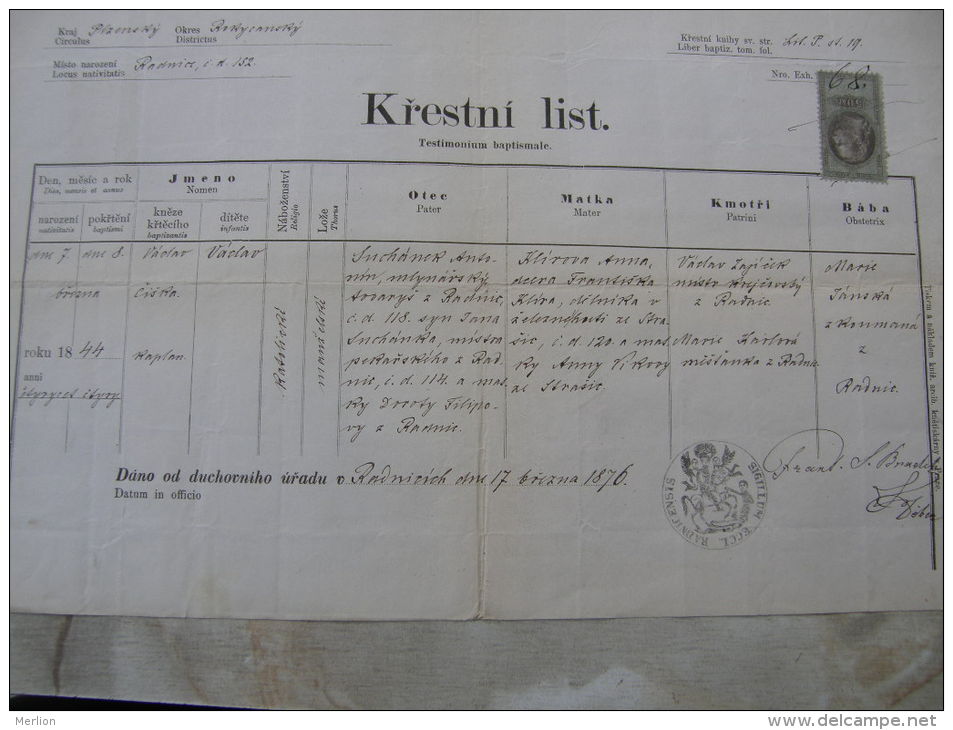 Kraj Plzenský Okres Rokycanský
Circulus Districtus
Místo narození Radnice, č. d. 152.
Locus nativitatis
Křestní knihy sv. str. Lit. P. st. 19.
Liber baptiz. tom. fol.
Nro. Exh. 68.
Křestní list.
Testimonium baptismale.
Den, měsíc a rok
Dies, mensis et annus
narození
nativitatis
pokřtění
baptismi
Jmeno
Nomen
kněze
křtécího
baptizantis
dítěte
infantis
Náboženství
Religio
Lože
Thorus
Otec
Pater
Matka
Mater
Kmotři
Patrini
Bába
Obstetrix
dne 7. dne 8.
března
roku 1844
anni
čtyrycet čtyry
Václav
Čiška
kaplan.
Václav
Katolické
manželské
Suchánek Anto-
nín, mlynářský
tovaryš z Radnic,
č. d. 118. syn Jana
Suchánka, mistra
pekařského z Rad-
nic, č. d. 114. a mat-
ky Doroty Filipo-
vy z Radnic.
Klírova Anna,
dcera Františka
Klíra, dělníka v
železné huti ze Stra-
šic, č. d. 120. a mat-
ky Anny
ze Strašic.
Václav Zajíček
mistr krejčovský
z Radnic.
Marie Karlová
měšťanka z Radnic
Marie
Jánská
z
Radnic.
Dáno od duchovního úřadu v Radnicích dne 17 března 1876.
Datum in officio
SIGILLUM ECCL. RADNICENSIS
Frant. S.
Merlion
http://www.delcampe.net